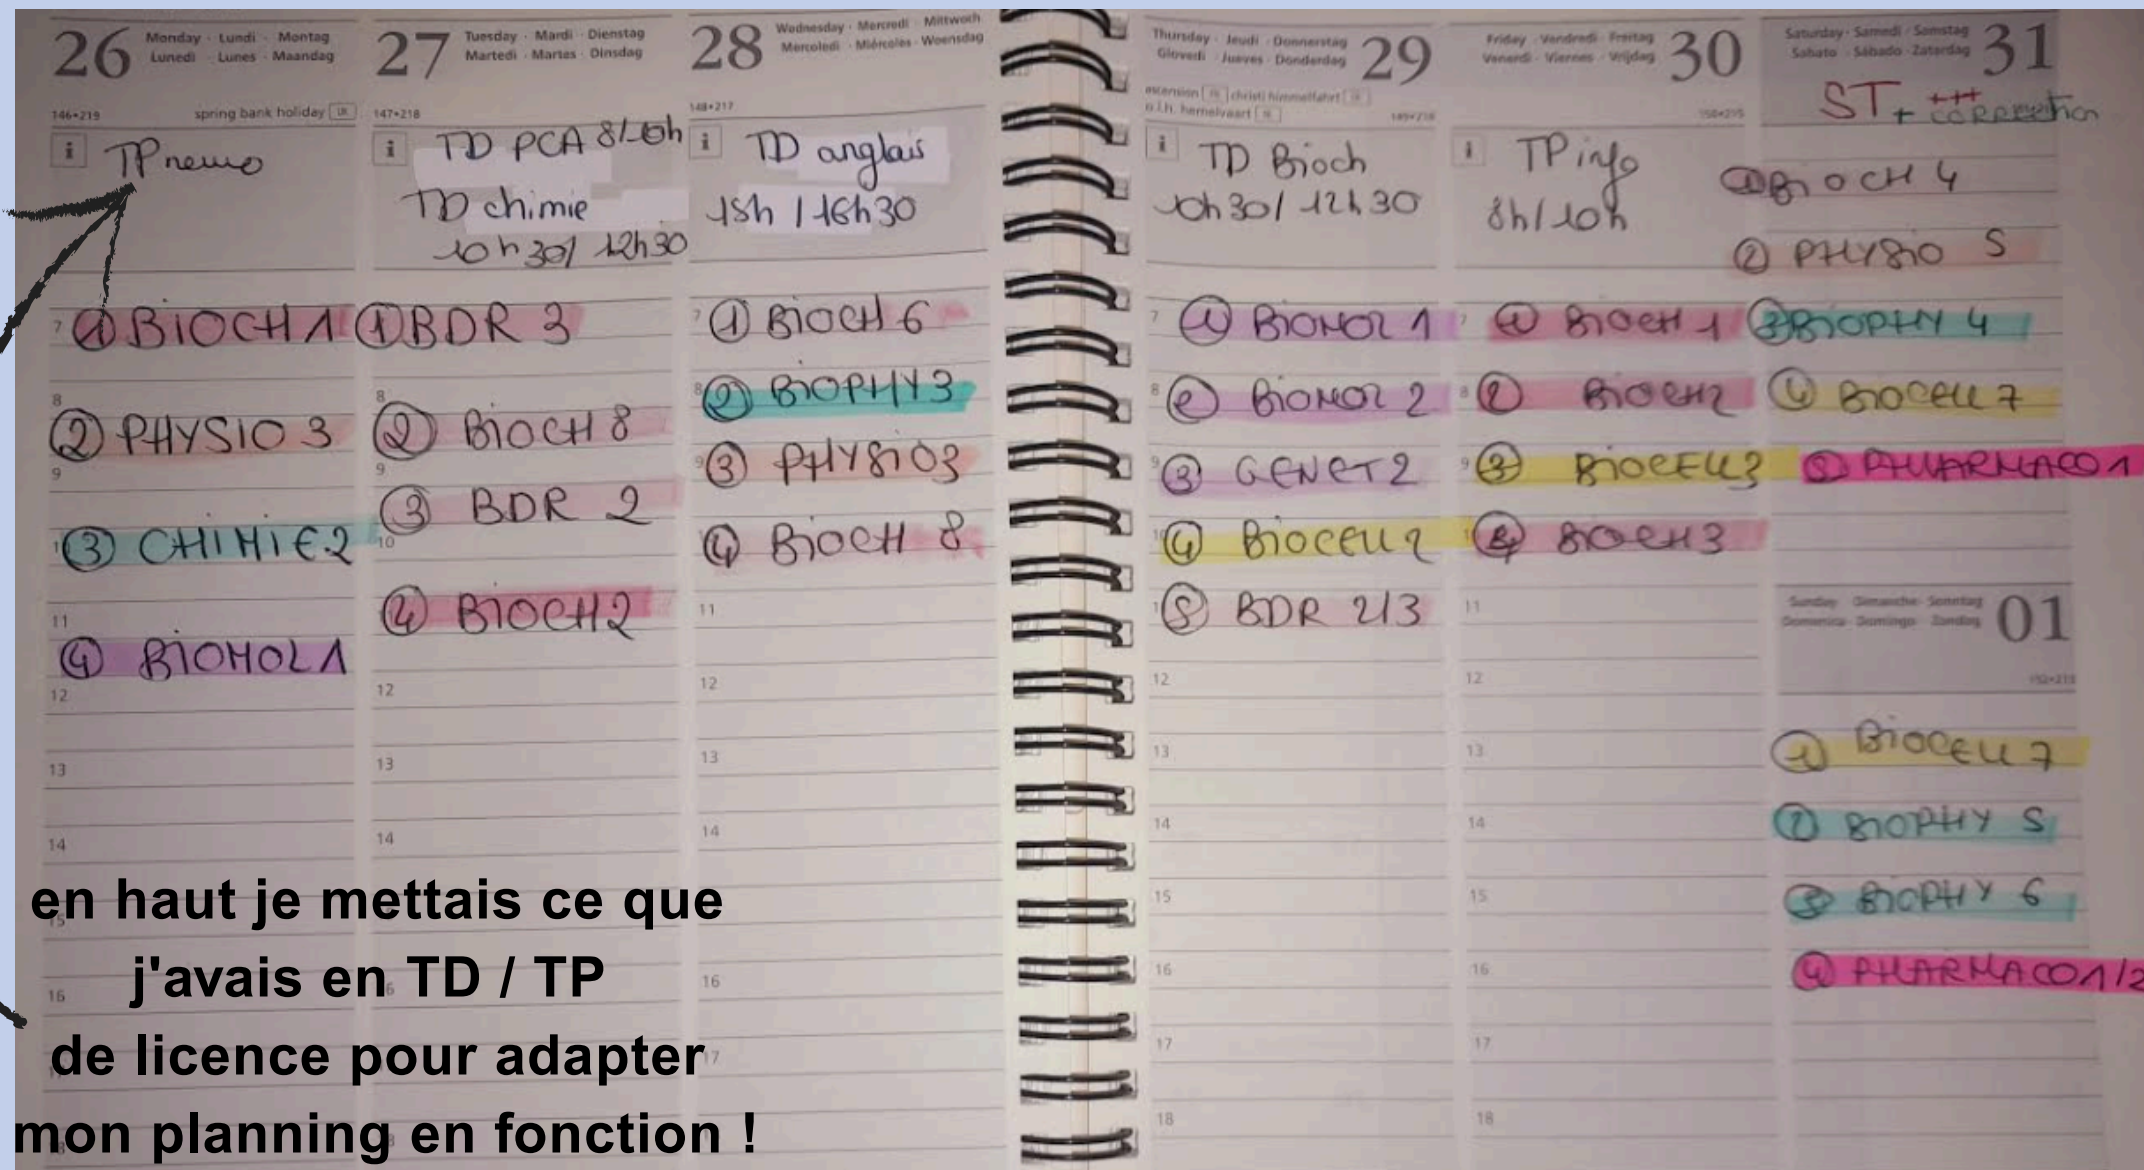 26 Monday · Lundi · Montag
Lunedì · Lunes · Maandag
146•219 spring bank holiday UK
i TP nemo
① BIOCH 1
② PHYSIO 3
③ CHIMIE 2
④ BIOMOL 1
7
8
9
11
12
13
14
15
16
27 Tuesday · Mardi · Dienstag
Martedì · Martes · Dinsdag
147•218
i TD PCA 8/10h
TD chimie
10h30/ 12h30
① BDR 3
② BIOCH 8
③ BDR 2
④ BIOCH 2
8
9
10
12
13
14
28 Wednesday · Mercredi · Mittwoch
Mercoledì · Miércoles · Woensdag
148•217
i TD anglais
15h / 16h30
① BIOCH 6
② BIOPHY 3
③ PHYSIO 3
④ BIOCH 8
7
8
9
11
12
13
14
16
17
Thursday · Jeudi · Donnerstag 29
Giovedì · Jueves · Donderdag
ascension FR christi himmelfahrt
o.l.h. hemelvaart
i TD Bioch
10h30/ 12h30
① BIOMOL 1
② BIOMOL 2
③ GENET 2
④ BIOCELL 2
⑤ BDR 2/3
7
8
9
12
13
14
15
16
17
18
Friday · Vendredi · Freitag 30
Venerdì · Viernes · Vrijdag
i TP info
8h/10h
① BIOCH 1
② BIOCH 2
③ BIOCELL 3
④ BIOCH 3
7
8
9
11
12
13
14
15
16
17
18
Saturday · Samedi · Samstag 31
Sabato · Sábado · Zaterdag
ST + +++ correction
① BIOCH 4
② PHYSIO 5
③ BIOPHY 4
④ BIOCELL 7
⑤ PHARMACO 1
Sunday · Dimanche · Sonntag 01
Domenica · Domingo · Zondag
① BIOCELL 7
② BIOPHY 5
③ BIOPHY 6
④ PHARMACO 1/2
en haut je mettais ce que
j'avais en TD / TP
de licence pour adapter
mon planning en fonction !